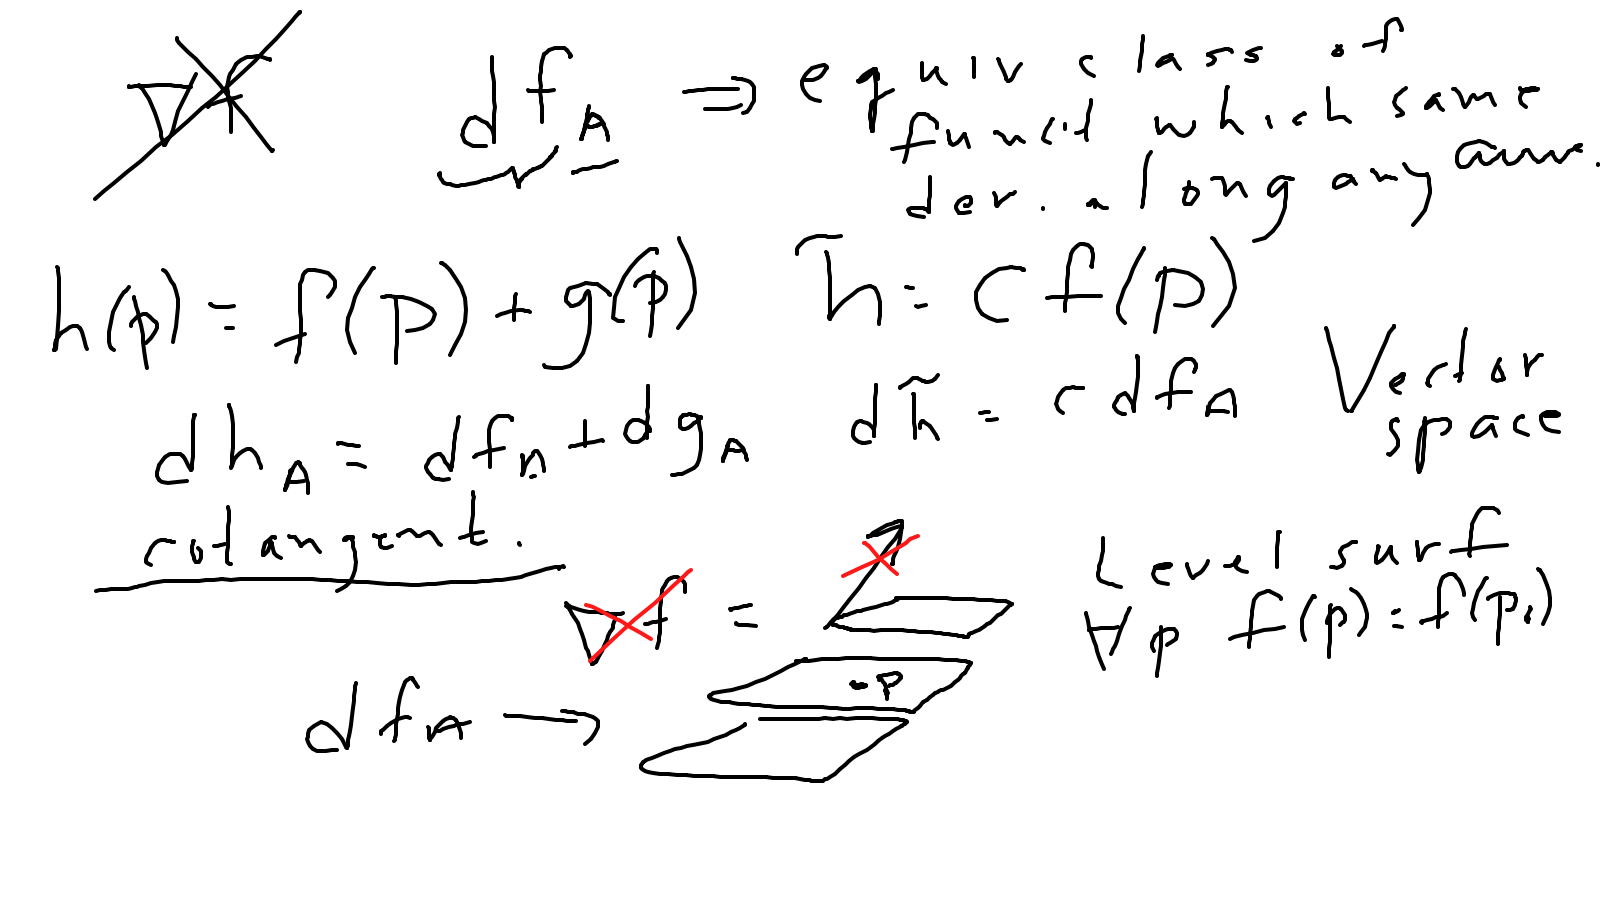 ∇f df_A ⇒ equiv class of
funct which same
der. along any curve.
h(p) = f(p) + g(p) h̃ = c f(p)
dh_A = df_A + dg_A dh̃ = c df_A Vector
space
cotangent.
∇f = Level surf
∀p f(p) = f(p,)
p
df_A →